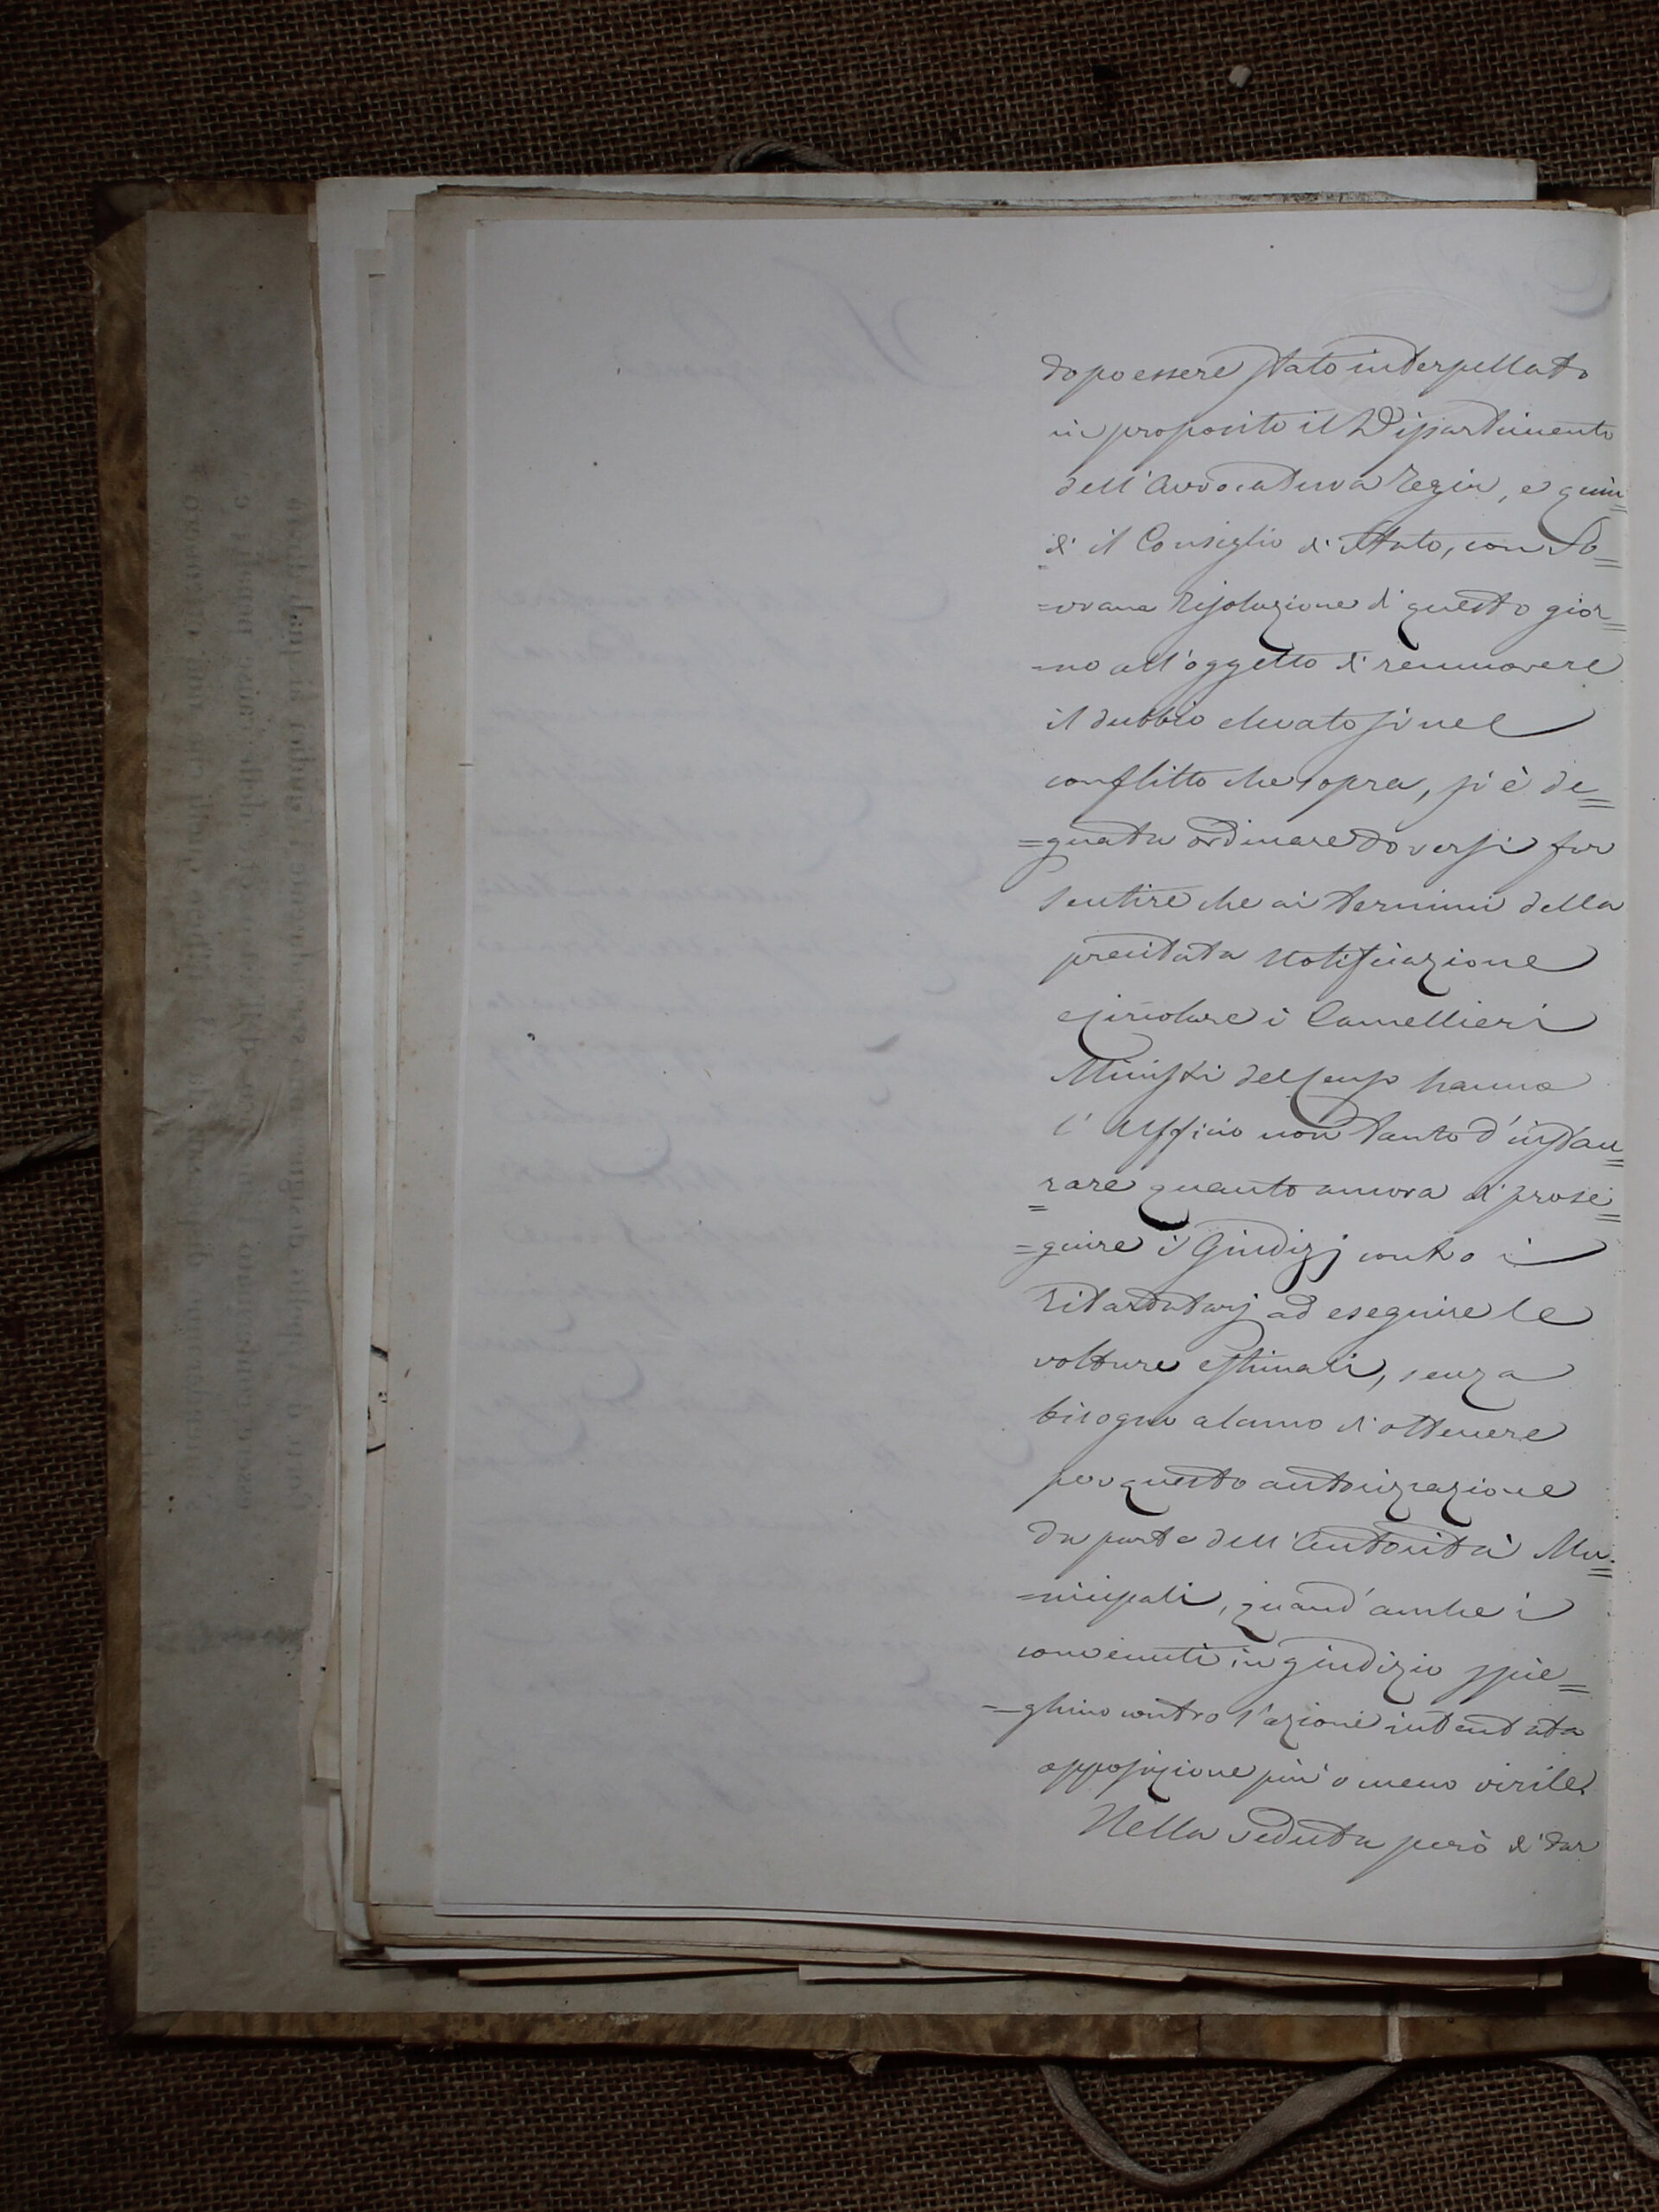 dopo essere stato interpellato
in proposito il Dipartimento
dell'Avvocatura Regia, e quin=
=di il Consiglio di Stato, con So=
=vrana Risoluzione di questo gior=
=no all'oggetto di remuovere
il dubbio elevatosi nel
conflitto che sopra, si è de=
=gnata ordinare doversi far
sentire che ai termini della
precitata Notificazione
e Circolare i Cancellieri
Ministri del Censo hanno
l'Uffizio non tanto d'instau=
=rare quanto ancora di prose=
=guire i Giudizj contro i
Ritardatarj ad eseguire le
volture estimali, senza
bisogno alcuno di ottenere
per questo autorizzazione
da parte dell'Autorità Mu=
=nicipali, quand'anche i
convenuti in giudizio spie=
=ghino contro l'azione intentata
opposizione più o meno virile.
Nella veduta però di dar